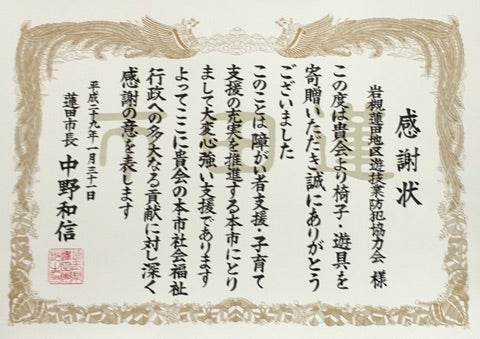 感謝状
岩槻蓮田地区遊技業防犯協力会 様
この度は貴会より椅子・遊具を
寄贈いただき誠にありがとう
ございました
このことは障がい者支援・子育て
支援の充実を推進する本市にとり
まして大変心強い支援であります
よってここに貴会の本市社会福祉
行政への多大なる貢献に対し深く
感謝の意を表します
平成二十九年一月三十一日
蓮田市長 中野和信
蓮田市